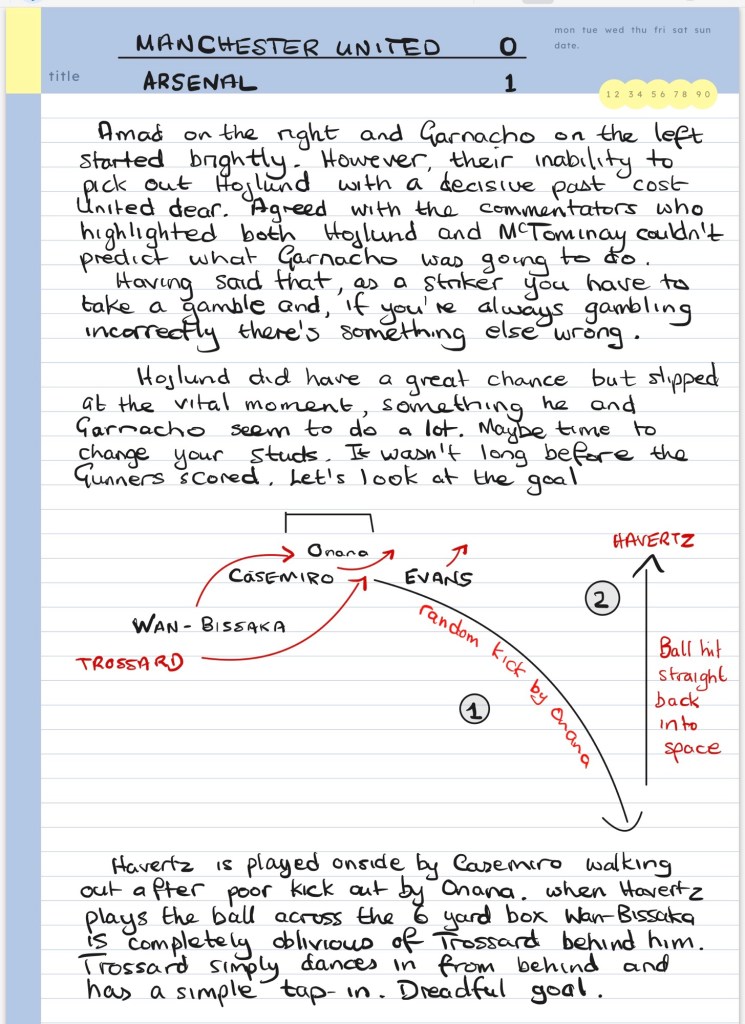 mon tue wed thu fri sat sun
date.
title
MANCHESTER UNITED 0
ARSENAL 1
12 34 56 78 90
Amad on the right and Garnacho on the left
started brightly. However, their inability to
pick out Hojlund with a decisive past cost
United dear. Agreed with the commentators who
highlighted both Hojlund and McTominay couldn't
predict what Garnacho was going to do.
Having said that, as a striker you have to
take a gamble and, if you're always gambling
incorrectly there's something else wrong.
Hojlund did have a great chance but slipped
at the vital moment, something he and
Garnacho seem to do a lot. Maybe time to
change your studs. It wasn't long before the
Gunners scored. Let's look at the goal
HAVERTZ
Onana
CASEMIRO
EVANS
2
WAN-BISSAKA
TROSSARD
random kick by Onana
1
Ball hit
straight
back
into
space
Havertz is played onside by Casemiro walking
out after poor kick out by Onana. when Havertz
plays the ball across the 6 yard box Wan-Bissaka
is completely oblivious of Trossard behind him.
Trossard simply dances in from behind and
has a simple tap-in. Dreadful goal.